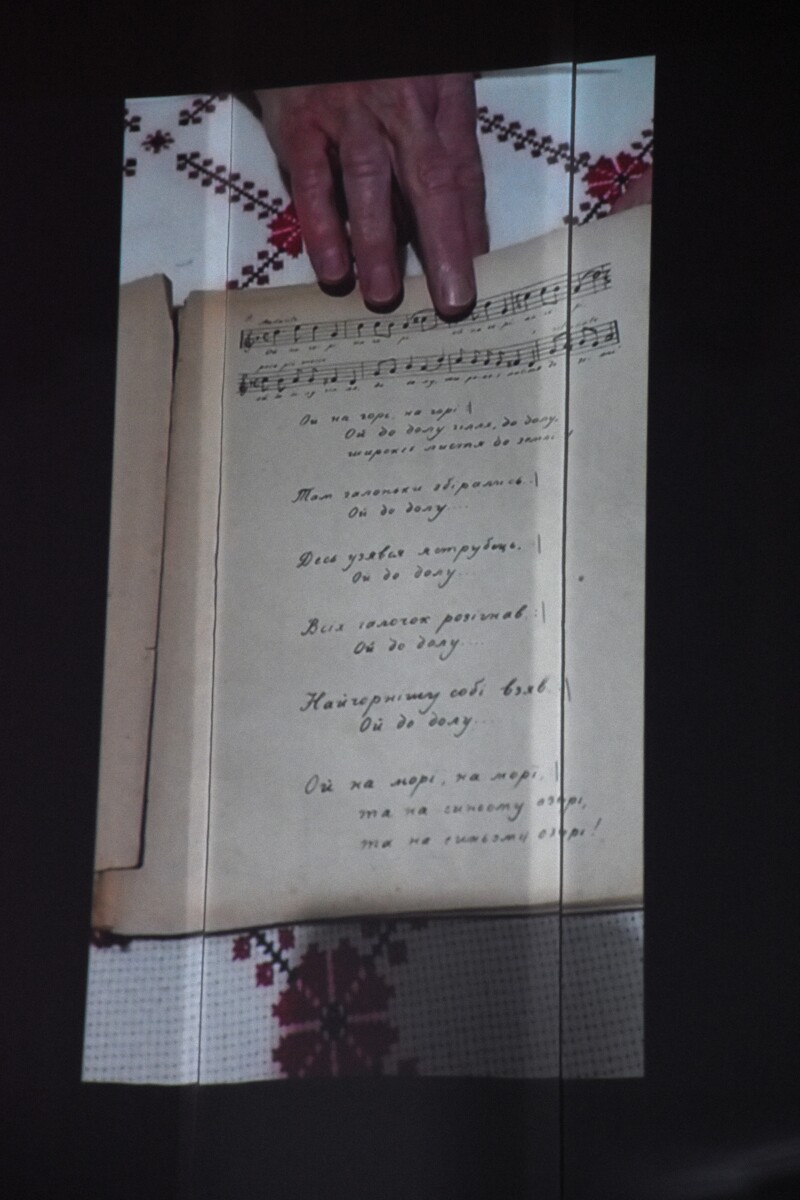 Ой на горі, на горі
Ой до долу гілля, до долу,
широкеє листя до землі!
Там галоньки збірались :|
Ой до долу....
Десь узявся яструбець, |
Ой до долу...
Всіх галочок розігнав :|
Ой до долу....
Найчорнішу собі взяв :|
Ой до долу....
Ой на морі, на морі, |
та на синьому озирі,
та на синьому озирі!